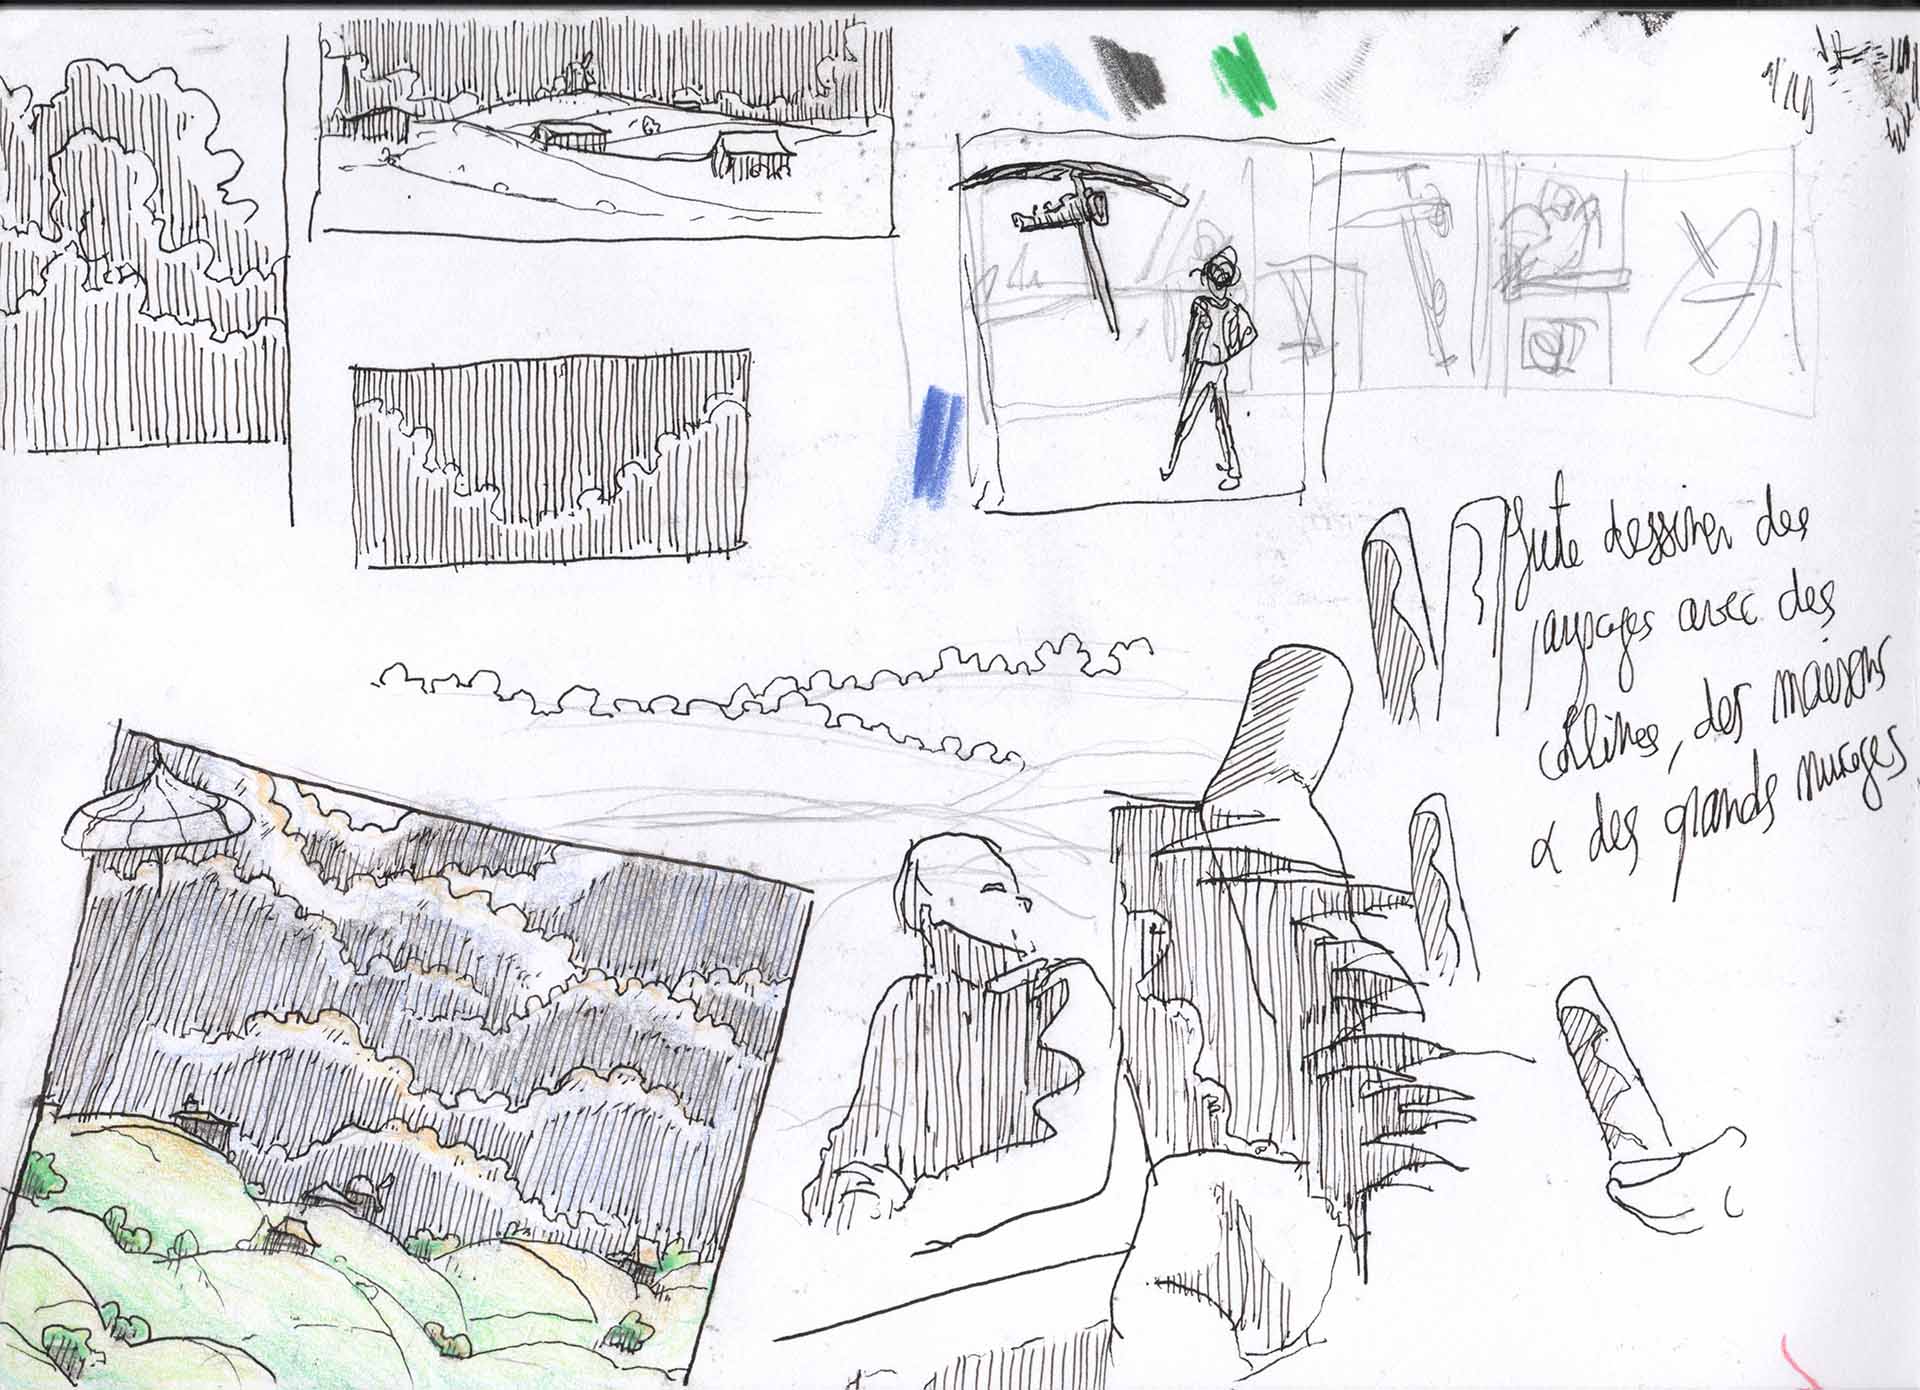 Juste dessiner des
paysages avec des
collines, des maisons
& des grands nuages